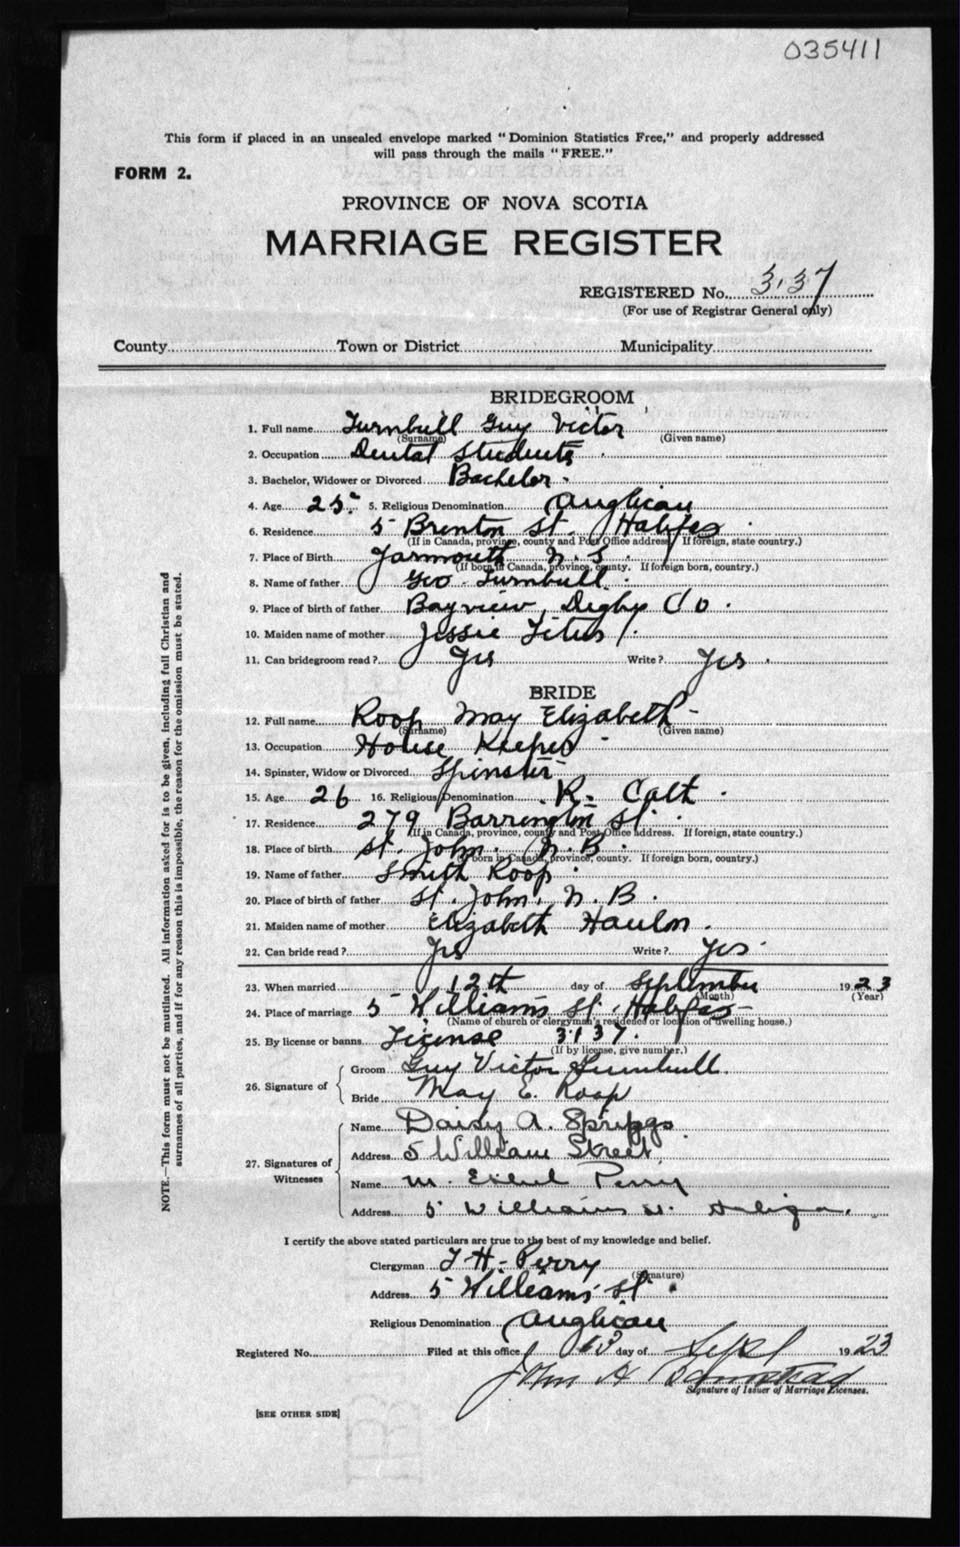 035411
This form if placed in an unsealed envelope marked "Dominion Statistics Free," and properly addressed
will pass through the mails "FREE."
FORM 2.
PROVINCE OF NOVA SCOTIA
MARRIAGE REGISTER
REGISTERED No. 3137
(For use of Registrar General only)
County Town or District Municipality
BRIDEGROOM
1. Full name Turnbull Guy Victor
(Surname) (Given name)
2. Occupation Dental Student
3. Bachelor, Widower or Divorced Bachelor
4. Age 25 5. Religious Denomination Anglican
6. Residence 5 Brenton St. Halifax
(If in Canada, province, county and Post Office address. If foreign, state country.)
7. Place of Birth Yarmouth N.S.
(If born in Canada, province, county. If foreign born, country.)
8. Name of father Geo. Turnbull.
9. Place of birth of father Bayview, Digby Co.
10. Maiden name of mother Jessie Titus.
11. Can bridegroom read? Yes Write? Yes.
BRIDE
12. Full name Roop May Elizabeth
(Surname) (Given name)
13. Occupation House Keeper
14. Spinster, Widow or Divorced Spinster
15. Age 26 16. Religious Denomination R. Cath.
17. Residence 279 Barrington St.
(If in Canada, province, county and Post Office address. If foreign, state country.)
18. Place of birth St. John. N.B.
(If born in Canada, province, county. If foreign born, country.)
19. Name of father Smith Roop.
20. Place of birth of father St. John, N.B.
21. Maiden name of mother Elizabeth Hanlon.
22. Can bride read? Yes Write? Yes.
23. When married 12th day of September 1923
(Month) (Year)
24. Place of marriage 5 Williams St. Halifax
(Name of church or clergyman's residence or location of dwelling house.)
25. By license or banns License 3137.
(If by license, give number.)
26. Signature of
Groom Guy Victor Turnbull.
Bride May E. Roop
27. Signatures of Witnesses
Name Daisy A. Spriggs
Address 5 William Street.
Name M. Perry
Address 5 Williams St. Halifax.
I certify the above stated particulars are true to the best of my knowledge and belief.
Clergyman T. H. Perry
(Signature)
Address 5 Williams St.
Religious Denomination Anglican
Registered No. Filed at this office 13 day of Sept 1923
John A
Signature of Issuer of Marriage Licenses.
[SEE OTHER SIDE]
NOTE.—This form must not be mutilated. All information asked for is to be given, including full Christian and
surnames of all parties, and if for any reason this is impossible, the reason for the omission must be stated.